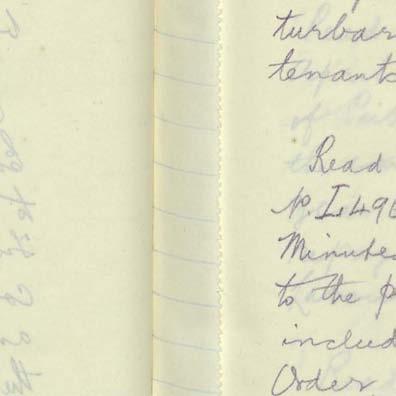 turbar
tenants
Read
No. I. 496
Minutes
to the p
includ
Order